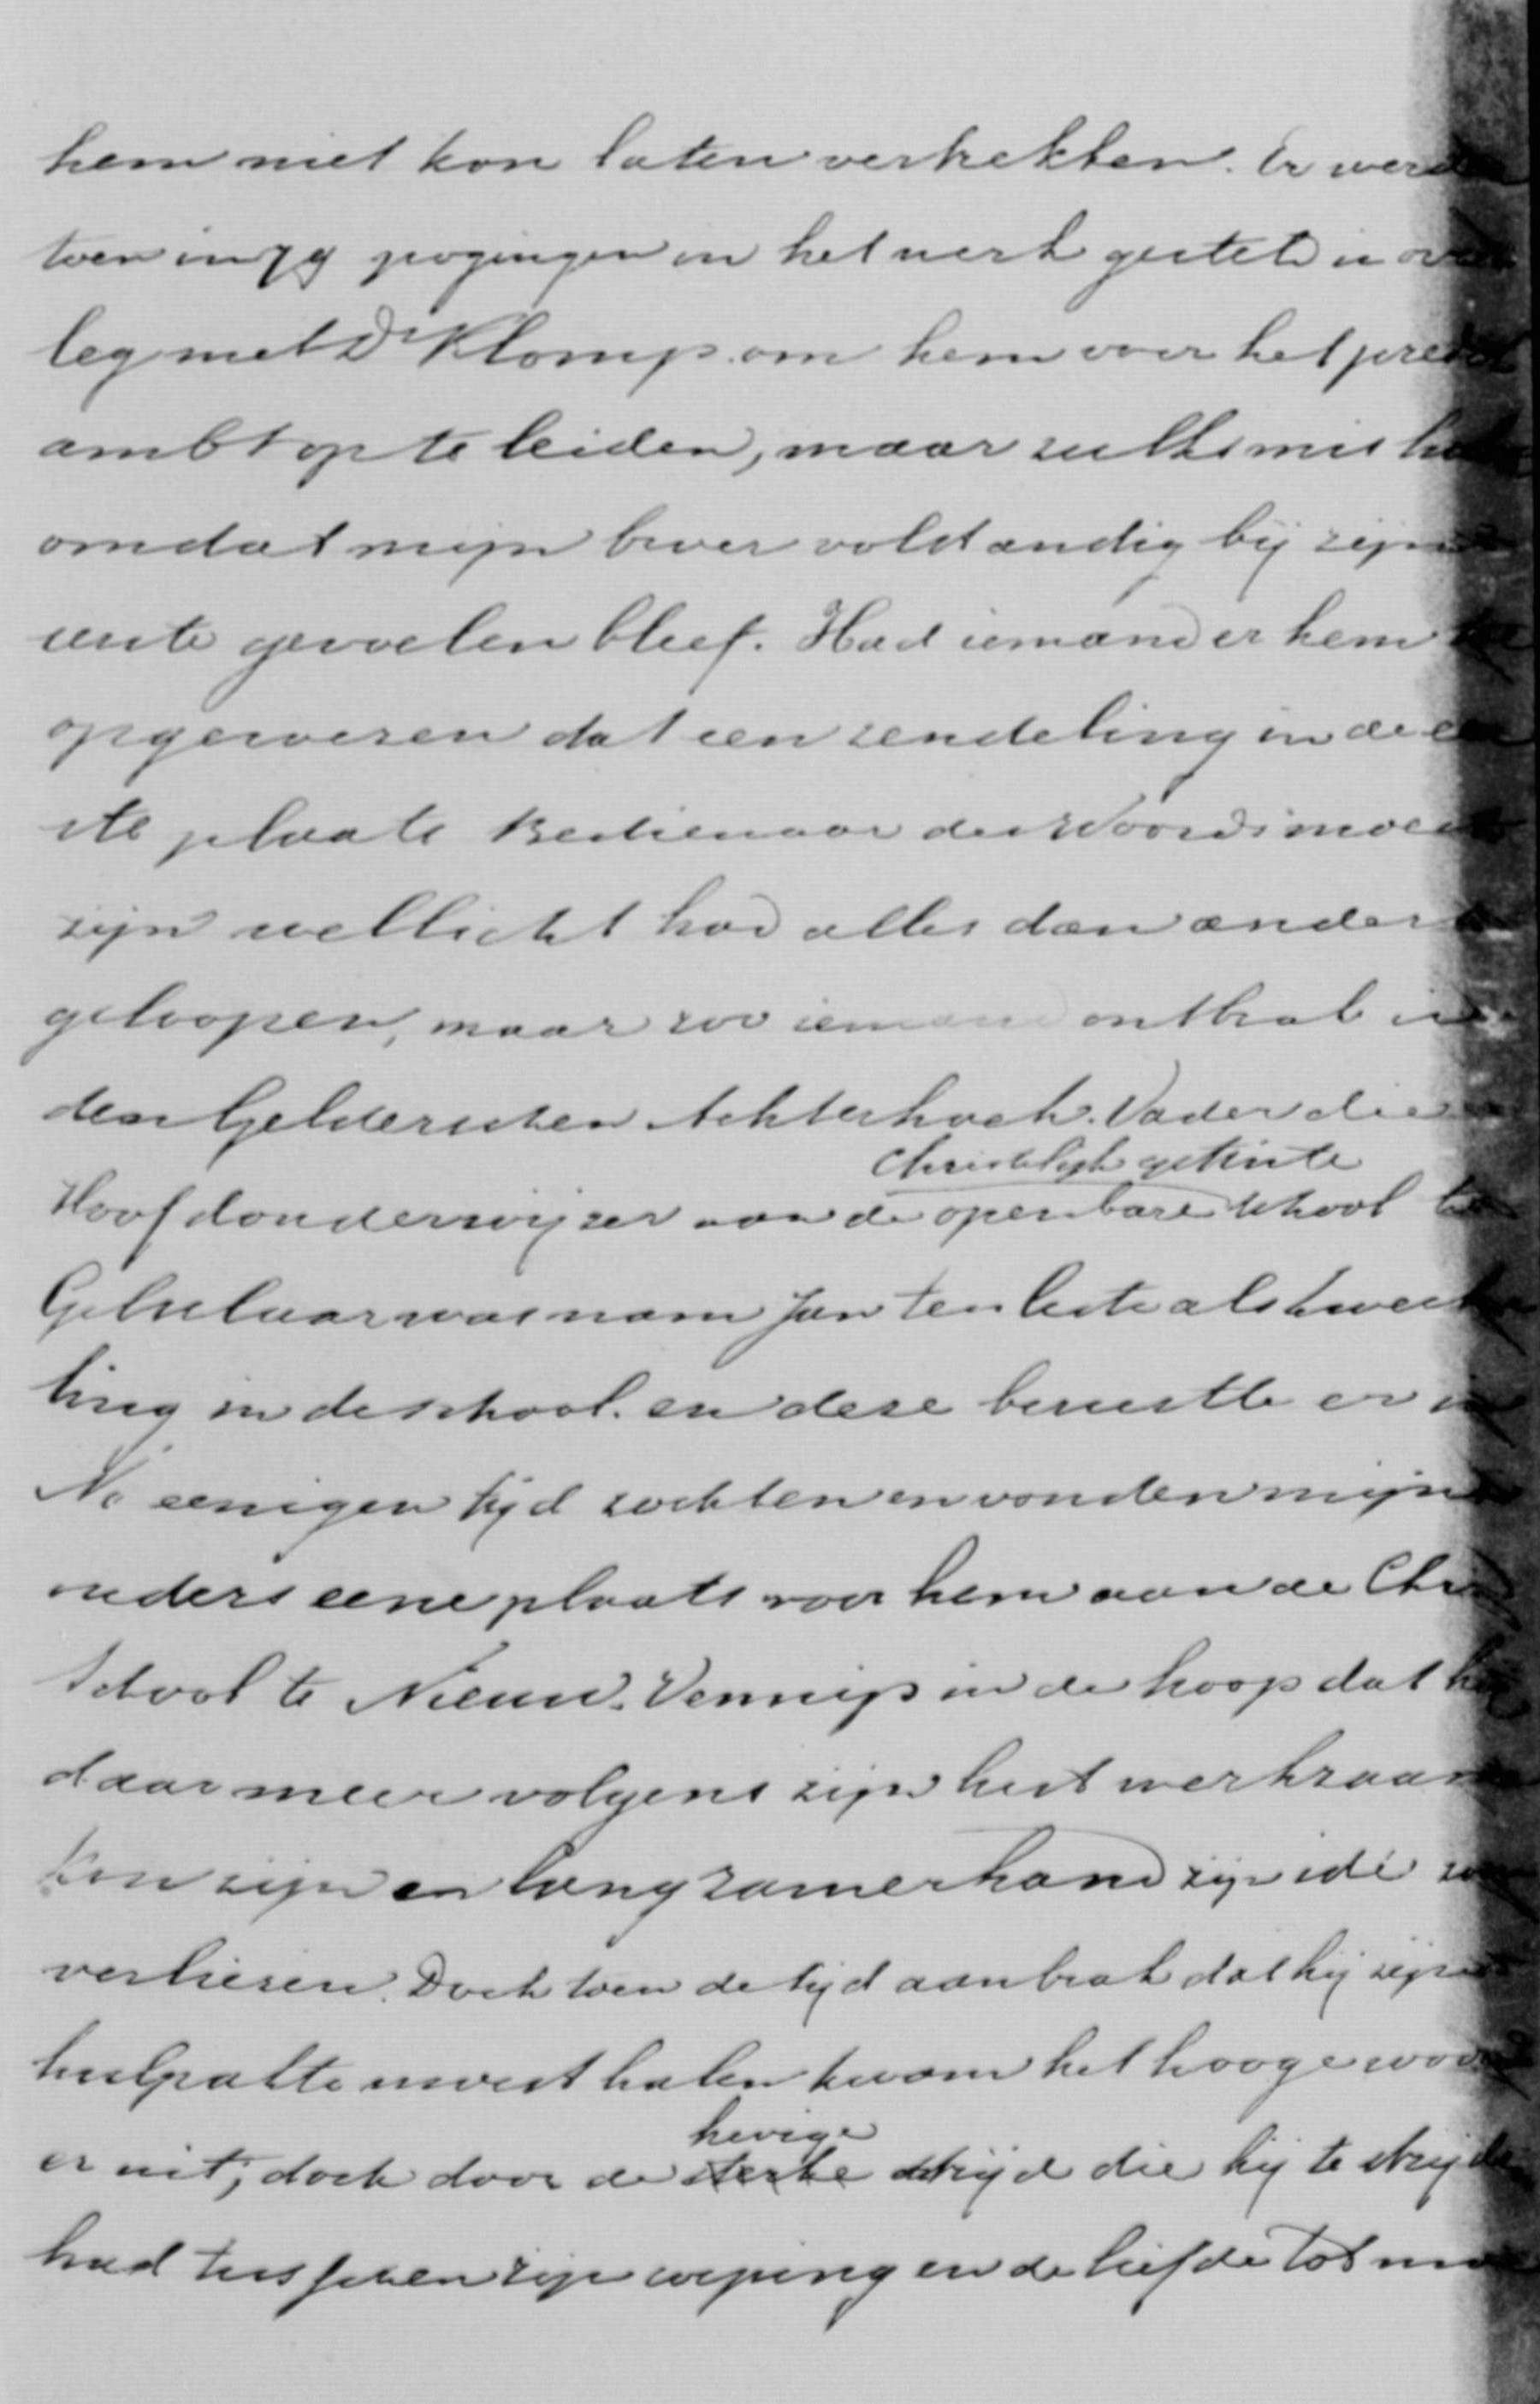 hem niet kon laten vertrekken. Er werd
toen in 79 pogingen in het werk gesteld in over
leg met Dr Klomp om hem voor het predik
ambt op te leiden, maar zulks mis
omdat mijn broer volstandig bij zijn
eerste gevoelen bleef. Had iemand er hem
op gewezen dat een zendeling in de eer
ste plaats Bedienaar des Woords moest
zijn wellicht had alles dan anders
geloopen, maar zoo iemand ontbrak in
den Gelderschen Achterhoek. Vader die
Christelijk getinte
Hoofdonderwijzer aan de openbare school te
Gelselaar was nam Jan ten leste als kweek
ling in de school. en deze berustte er in
Na eenigen tijd zochten en vonden mijn
ouders eene plaats voor hem aan de Chr
School te Nieuw. Vennip in de hoop dat hij
daar meer volgens zijn hart werkzaam
kon zijn en langzamerhand zijn idé zou
verliezen. Doch toen de tijd aanbrak dat hij zijn
hulpakte moest halen kwam het hooge woord
er uit, doch door de sterke hevige strijd die hij te strijden
had tusschen zijn roeping en de liefde tot